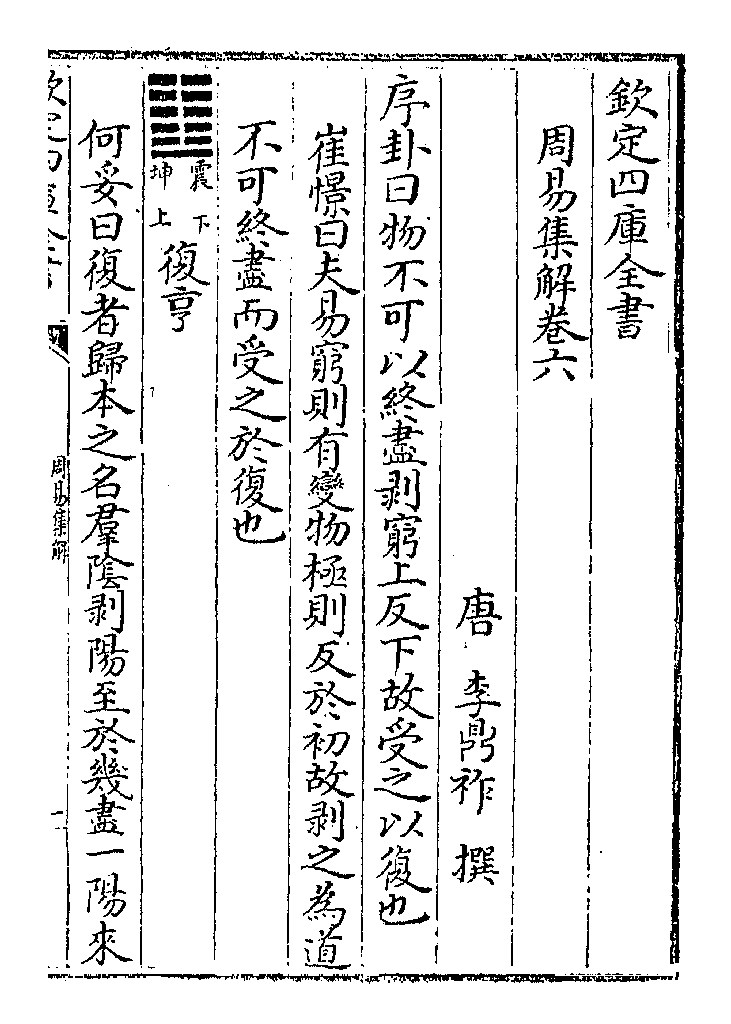 欽定四庫全書
周易集解卷六
唐 李鼎祚 撰
序卦曰物不可以終盡剥窮上反下故受之以復也
崔憬曰夫易窮則有變物極則反於初故剥之為道
不可終盡而受之於復也
震下
坤上
復亨
何妥曰復者歸本之名羣陰剥陽至於幾盡一陽來
周易集解